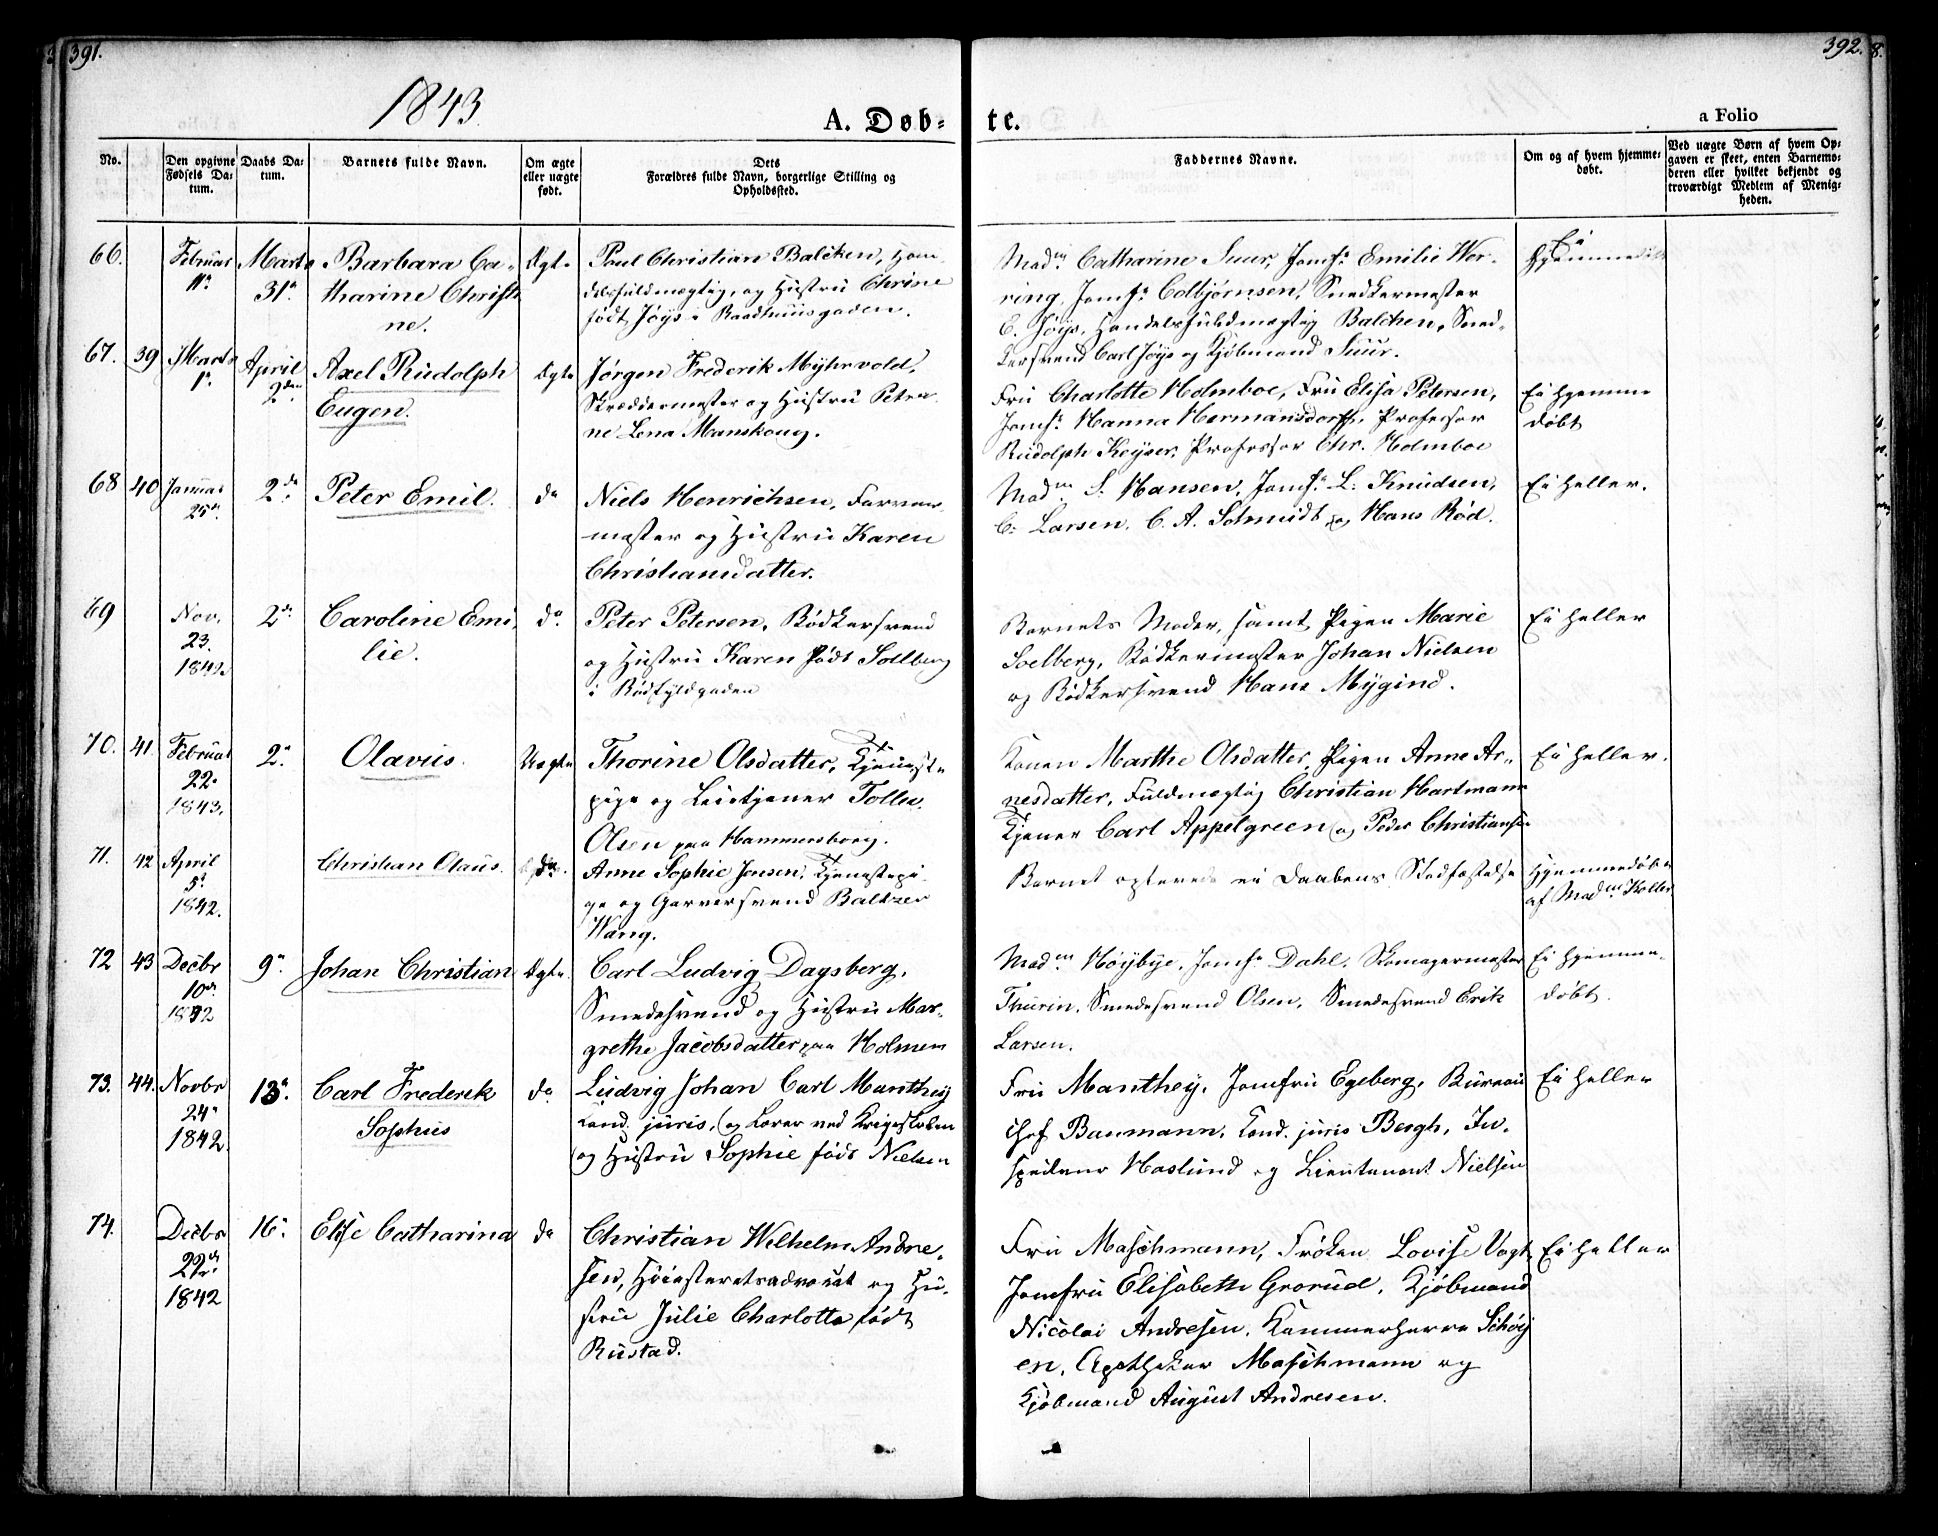 391.
392.
8.
1843
A. Døb-
te.
a Folio
No.
Den opgivne
Fødsels Da-
tum.
Daabs Da-
tum.
Barnets fulde Navn.
Om ægte
eller uægte
født.
Dets
Forældres fulde Navn, borgerlige Stilling og
Opholdssted.
Faddernes Navne.
Om og af hvem hjemme-
døbt.
Ved uægte Børn af hvem Op-
gaven er skeet, enten Barnemo-
deren eller hvilket bekjendt og
troværdigt Medlem af Menig-
heden.
66.
Februar
11te
Marts
31te
Barbara Ca-
tharine Christi
ne.
Ægte
Paul Christian Balchen, Han-
delsfuldmægtig, og Hustru Chrine
født Jöys i Raadhuusgaden.
Madm. Catharine Suur, Jomf. Emilie Wer-
ring, Jomf. Colbjørnsen, Snedkermester
E. Jöys, Handelsfuldmægtig Balchen, Sned-
kersvend Carl Jöys og Kjöbmand Suur.
Ei
Hjemme
67. 39
Marts
1te
April
2den
Axel Rudolph
Eugen.
Ægte
Jørgen Frederik Myhrvold,
Skræddermester og Hustru Petra
ne Lena Manskoug.
Fru Charlotte Holmboe, Fru Elisa Petersen,
Jomf. Hanna Hermansdorff, Professor
Rudolph Keyser, Professor Chr. Holmboe
Ei hjemme
døbt
68 40
Januar
25de
2de
Peter Emil.
do
Niels Henrichsen, Farver
mester og Hustru Karen
Christiansdatter.
Madm. S. Hansen, Jomf. L. Knudsen,
C. Larsen, C. A. Schmidt og Hans Röd.
Ei heller.
69
Nov.
23.
1842.
2de
Caroline Emi
lie.
do
Peter Petersen, Bødkersvend
og Hustru Karen født Sollberg
i Rødfyldgaden
Barnets Moder, samt Pigen Marie
Soelberg, Bødkermester Johan Nielsen
og Bødkersvend Hans Mygind.
Ei heller
70. 41.
Februar
22de
1843.
2de
Olavus.
Uægte
Thorine Olsdatter, Tjeneste
pige og Leietjener Tollev
Olsen paa Hammersborg.
Konen Marthe Olsdatter, Pigen Anne Ar-
nesdatter, Fuldmægtig Christian Hartmann
Tjener Carl Appelgreen og Peder Christiansen
Ei heller.
71. 42
April
5te
1842.
Christian Olaus.
do
Anne Sophie Jensen, Tjenestepi-
ge og Garversvend Baltzer
Wang.
Barnet opleved ei Daabens Stadfæstelse
Hjemmedøbt
af Madm. Koller
72 43
Decbr
10de
1842
9de
Johan Christian
Ægte
Carl Ludvig Dagsberg,
Smedesvend og Hustru Mar-
grethe Jacobsdatter paa Holmen
Madm. Höybye, Jomf. Dahl, Skomagermester
Thurin, Smedesvend Olsen, Smedesvend Erik
Larsen.
Ei hjemme-
døbt.
73. 44.
Novbr
24de
1842.
13de
Carl Frederik
Sophus
do
Ludvig Johan Carl Manthey
Cand. juris, og Lærer ved Krigsskolen
og Hustru Sophie født Nielsen
Fru Manthey, Jomfru Egeberg, Bureau
chef Baumann, Cand. juris Bergh, In-
specteur Haslund og Lieutenant Nielsen
Ei heller
74.
Decbr
22de
1842
16de
Elise Catharina
do
Christian Wilhelm Andre-
sen, Høiesteretsadvocat og Hu-
stru Julie Charlotte født
Rustad.
Fru Maschmann, Frøken Lovise Vogt,
Jomfru Elisabeth Grorud, Kjöbmand
Nicolai Andresen, Kammerherre Schöy
en, Apotheker Maschmann og
Kjöbmand August Andresen.
Ei heller